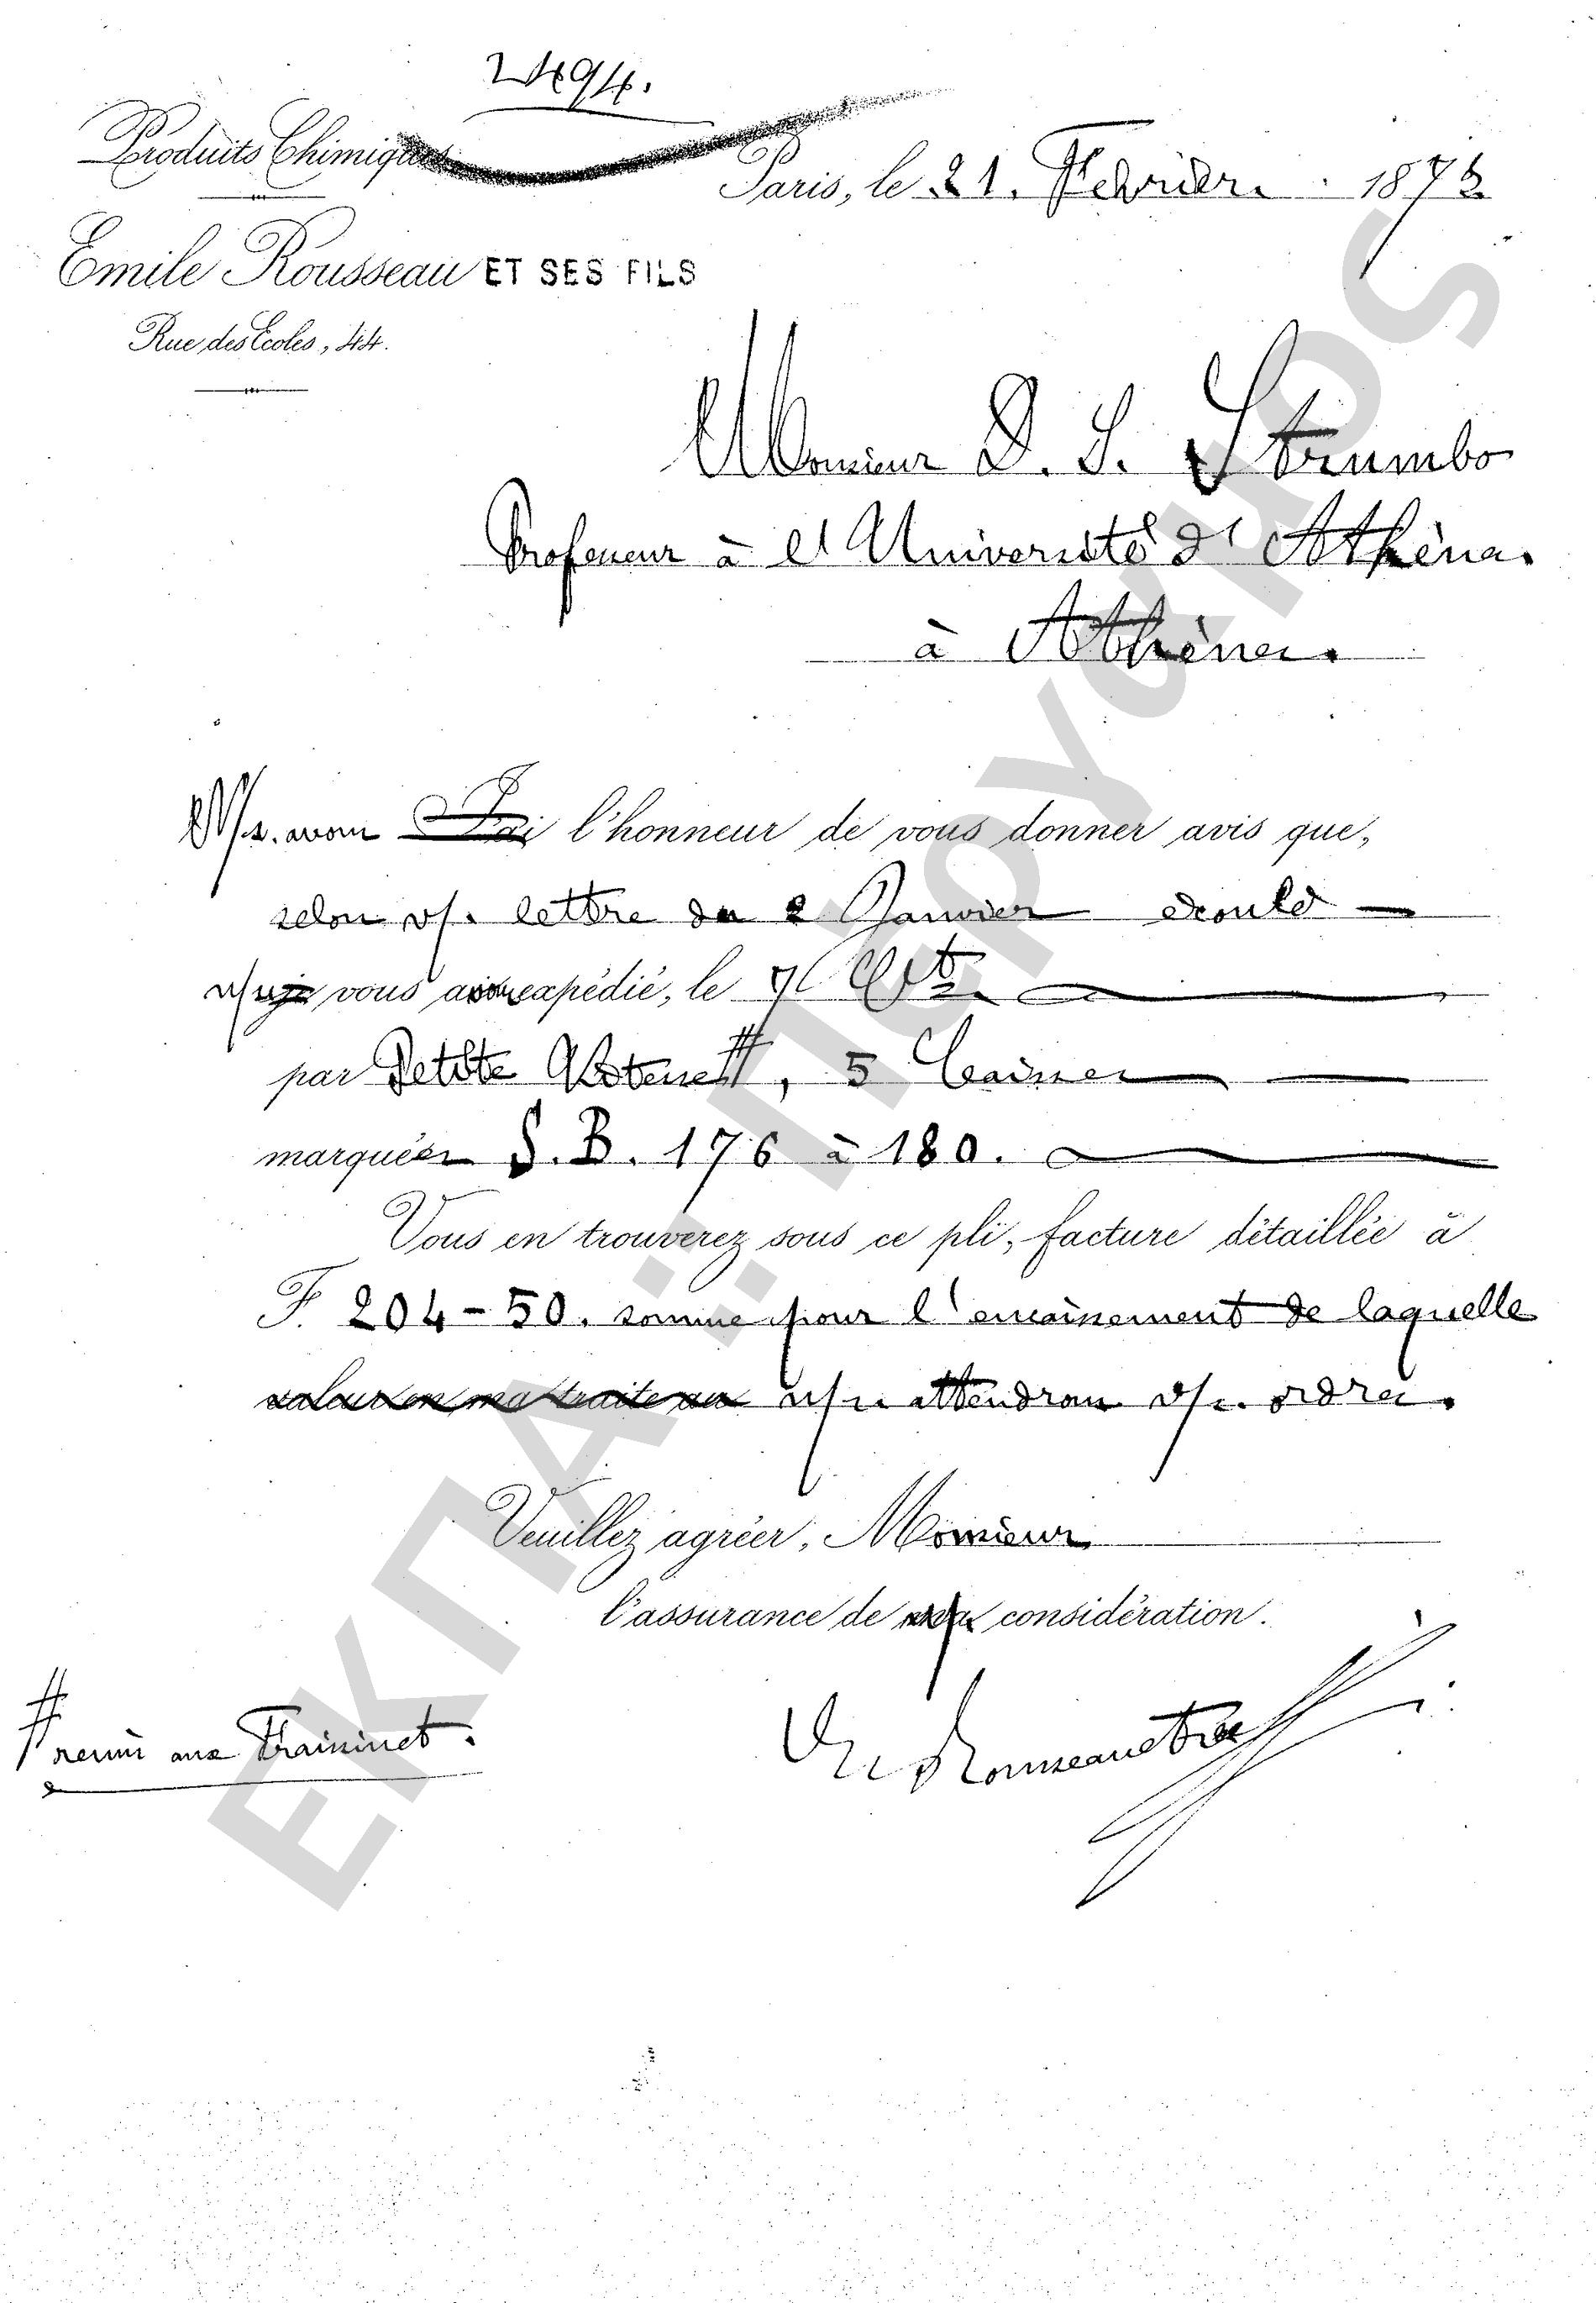 2494.
Produits Chimiques
Paris, le 21. Février. 187
Emile Rousseau ET SES FILS
Rue des Ecoles, 44.
Monsieur D. S. Strumbo
Professeur à l'Université d'Athènes.
à Athènes.
N/s. avons J'ai l'honneur de vous donner avis que,
selon v/. lettre du 2 Janvier écoulé
n/s je vous avons expédié, le 7 Ct.
par Petite Vitesse #, 5 Caisses
marquées S. B. 176 à 180.
Vous en trouverez sous ce pli, facture détaillée à
F. 204-50. somme pour l'encaissement de laquelle
valeur en ma traite au n/s. attendrons v/s. ordres.
Veuillez agréer, Monsieur
l'assurance de ma considération.
# remis aux Fraissinet.
ΕΚΠΑ :: Πέργαμος